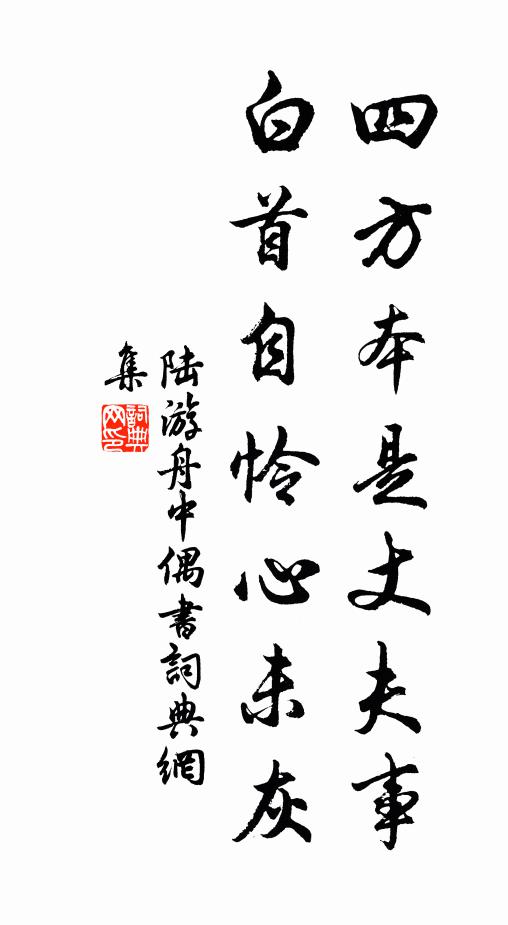 四方本是丈夫事
白首自怜心未灰
陆游舟中偶書詞典網
集
詞典网印